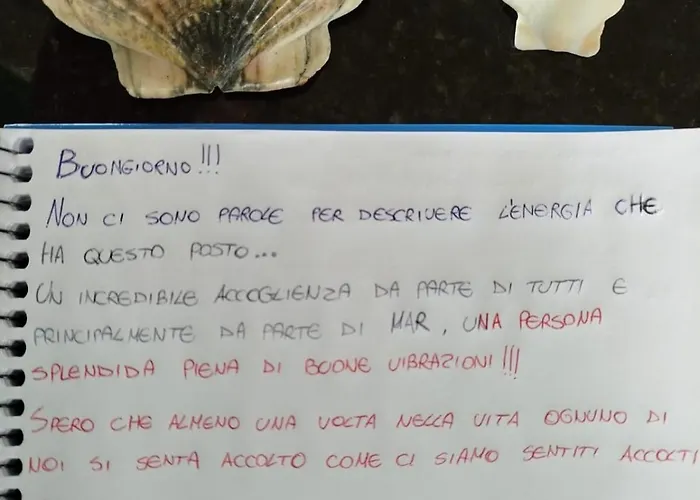 BUONGIORNO!!!
NON CI SONO PAROLE PER DESCRIVERE L'ENERGIA CHE
HA QUESTO POSTO...
UN INCREDIBILE ACCOGLIENZA DA PARTE DI TUTTI E
PRINCIPALMENTE DA PARTE DI MAR, UNA PERSONA
SPLENDIDA PIENA DI BUONE VIBRAZIONI!!!
SPERO CHE ALMENO UNA VOLTA NELLA VITA OGNUNO DI
NOI SI SENTA ACCOLTO COME CI SIAMO SENTITI ACCOLTI